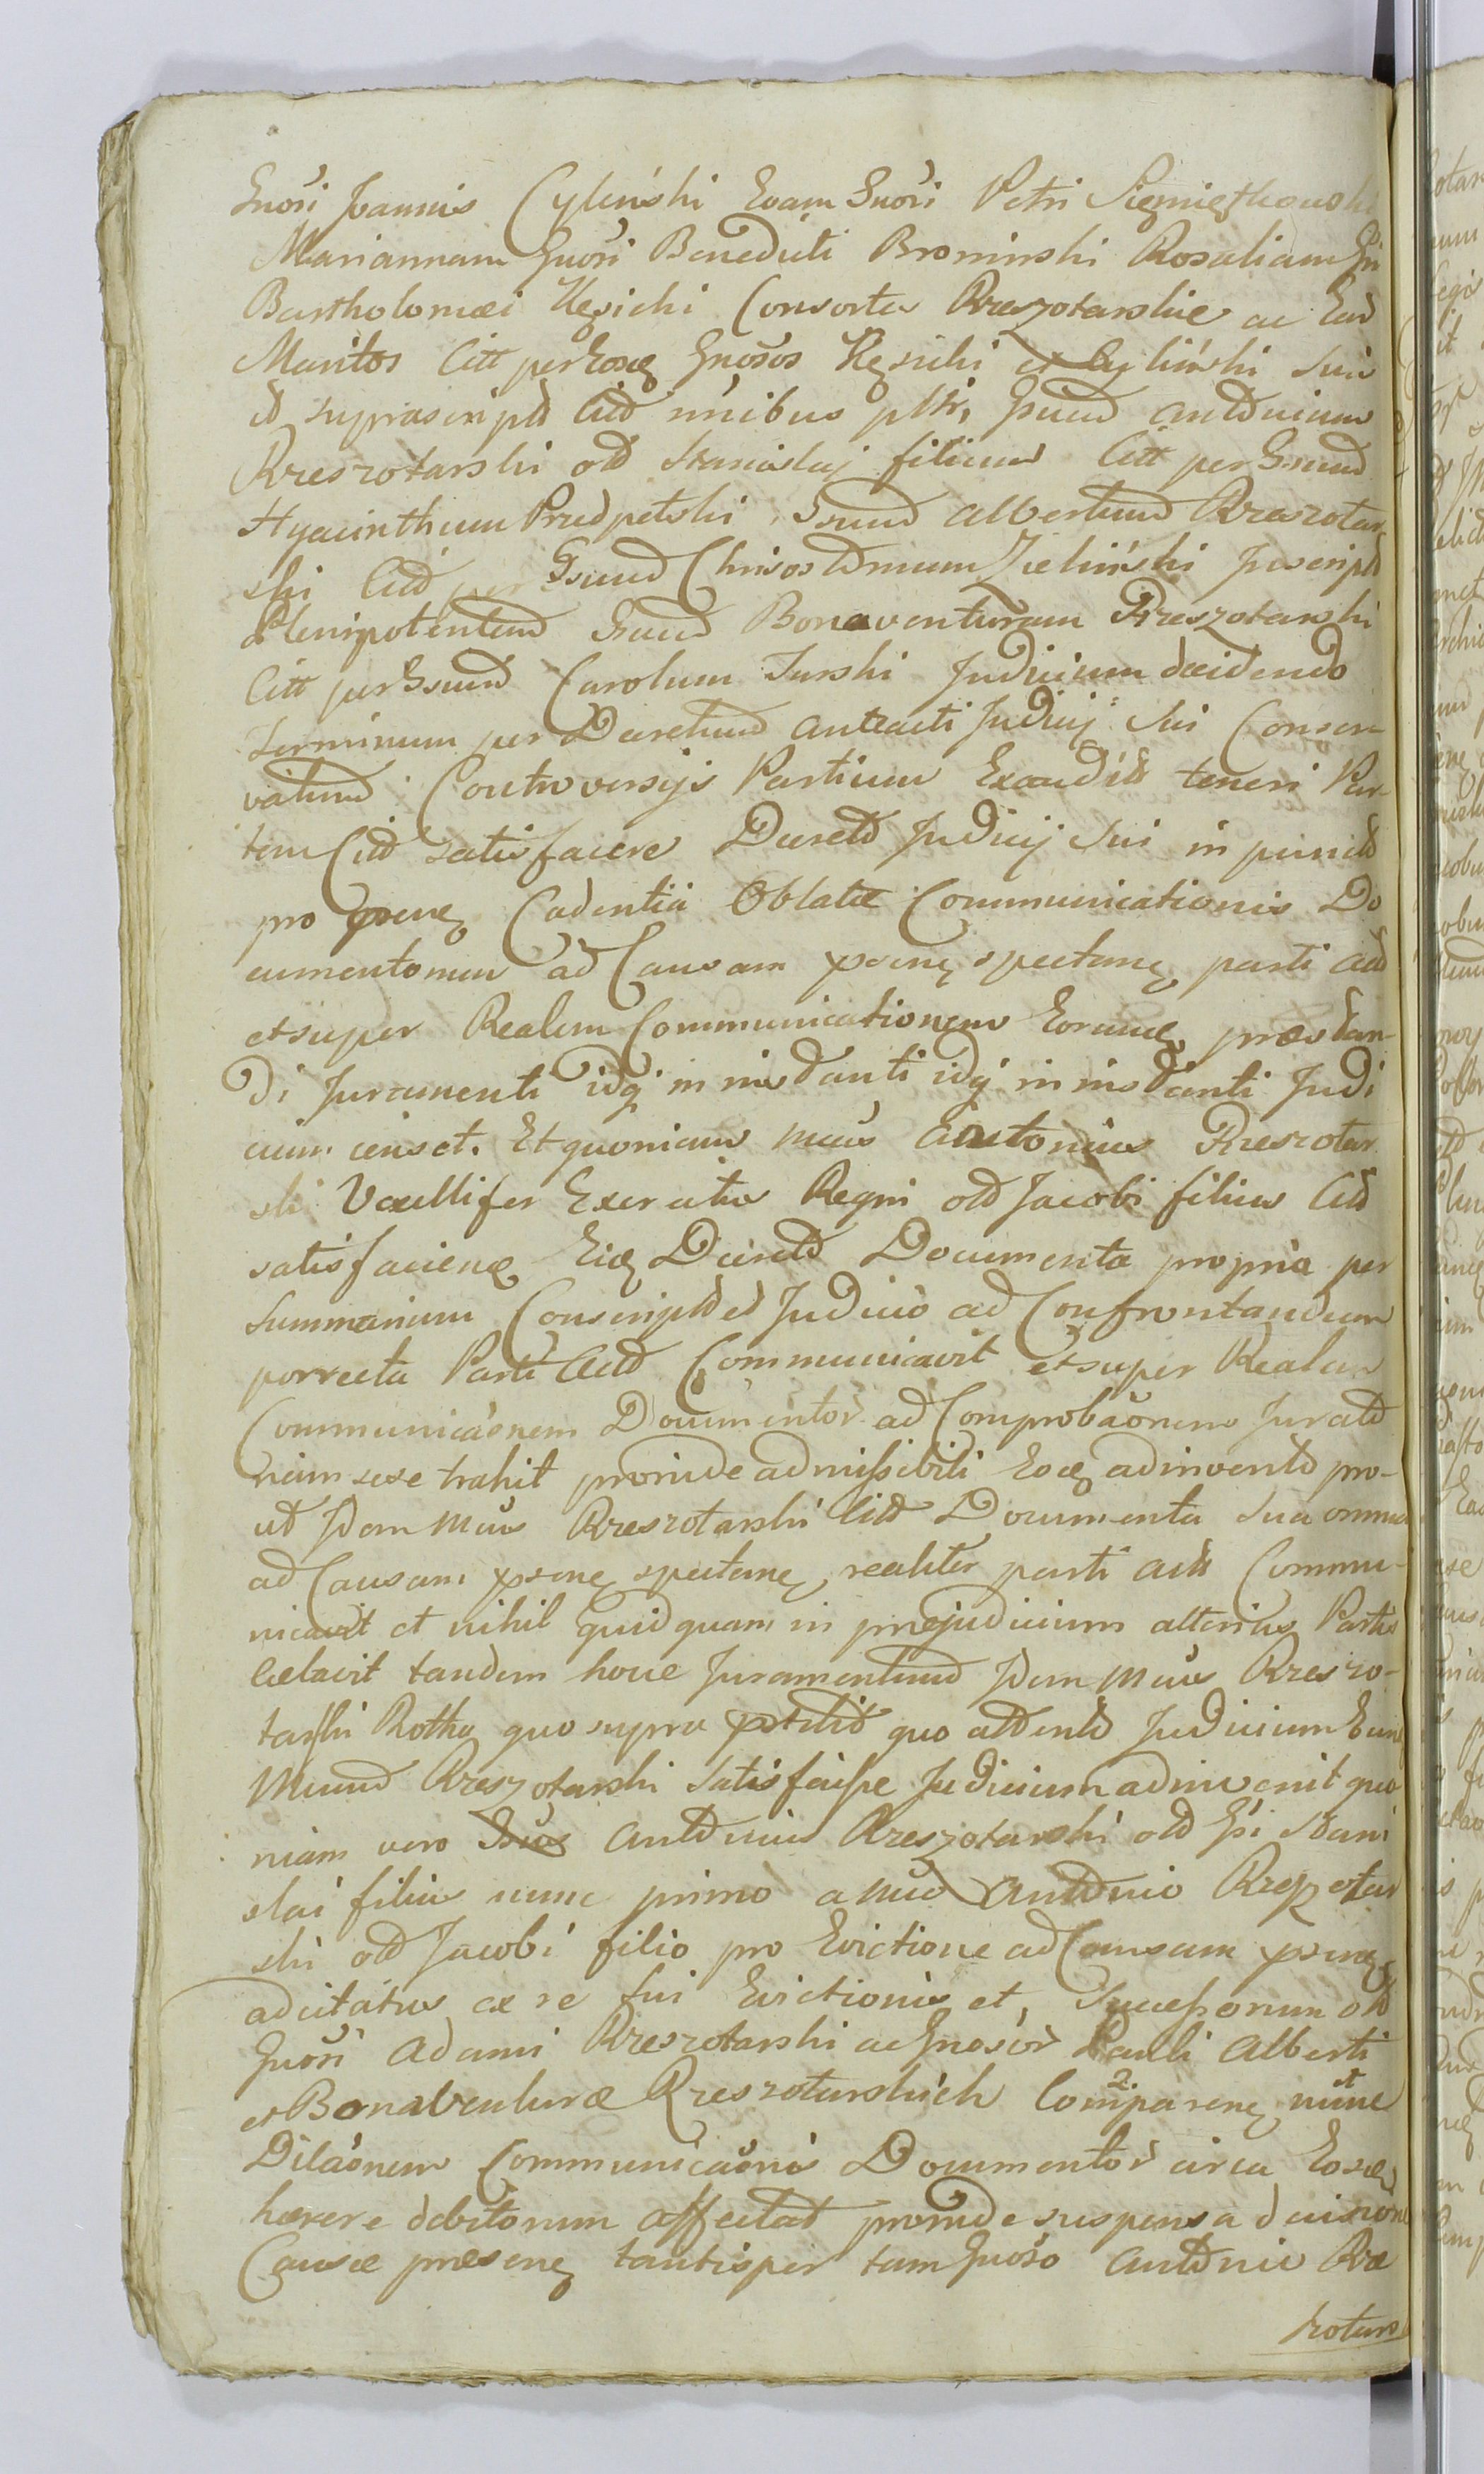 Gnosi Joannis Cyleński Evam Gnosi Petri Siemiątkowski
Mariannam Gnosi Benedicti Brominski Rosaliam Gn
Bartholomæi Kęsicki Consortes Rzeszotarskie ac Ead
Maritos Citt per Eosq Gnosos Kęsicki et Cyliński suis
et suprascriptt Citt nnibus pltr, Gnum Anttonium
Rzeszotarski ott Stanislaj filium Citt per Gnum
Hyacinthum Prudpetski Gnum Albertum Rzeszotar
ski Citt per Gsum Chrisosttmum Zieliński Inscript
Plenipotentem Gnum Bonaventuram Rzeszotarski
Citt per Gsum Carolum Turski Judicium dæcidendo
Terminum per Decretum anteacti Judicij sui Conser-
vatum Controversijs Partium Exauditt teneri Par-
tem Citt satisfacere Decretto Judicij sui in puncto
pro psenq Cadentia Oblatæ Communicationis Do
cumentorum ad Causam psenq spectanq parti Citt
et super Realem Communicationem Eorumq præstan-
di Juramenti idq in instanti idq in instanti Judi
cium censet. Et quoniam Mcus Antonius Rzeszotar
ski Vexillifer Exercitus Regni ott Jacobi filius Citt
satisfacienq Eidq Decreto Documenta propria per
Summarium Conscriptt et Judicio ad Confrontandum
porrecta Parti Citt Communicavit et super Realem
Communicaonem Documentor ad Comprobaonem Juratto
riam sese trahit proinde admissibili Eodq adinvento pro-
ut Idem Mcus Rzeszotarski Citt Documenta sua omnia
ad Causam psenq spectanq realiter parti Citt Commu-
nicavit et nihil quidquam in præjudicium alterius Partis
celavit tandem hocce Juramentum Idem Mcus Rzeszo-
tarski Rotha quo supra præstitit quo attento Judicium Eund
Mcum Rzeszotarski satisfecisse Judicium adinvenit quo
niam vero Gsus Anttonius Rzeszotarski ott Gsi Stani
slai filius nunc primo a Mco Anttonio Rzeszotar
ski ott Jacobi filio pro Evictione ad Causam psenq
adcitatus ex re sui Evictionis et Successorum ott
Gnosi Adami Rzeszotarski ac Gnosor Pauli Alberti
et Bonaventuræ Rzeszotarskich Comparenq nunc et
Dilaonem Communicaonis Documentor circa Eosdq
hærere debitorum affectat proinde suspensa decisione
Causæ præsenq tantisper tam Gnoso Anttonio Rze
szotars